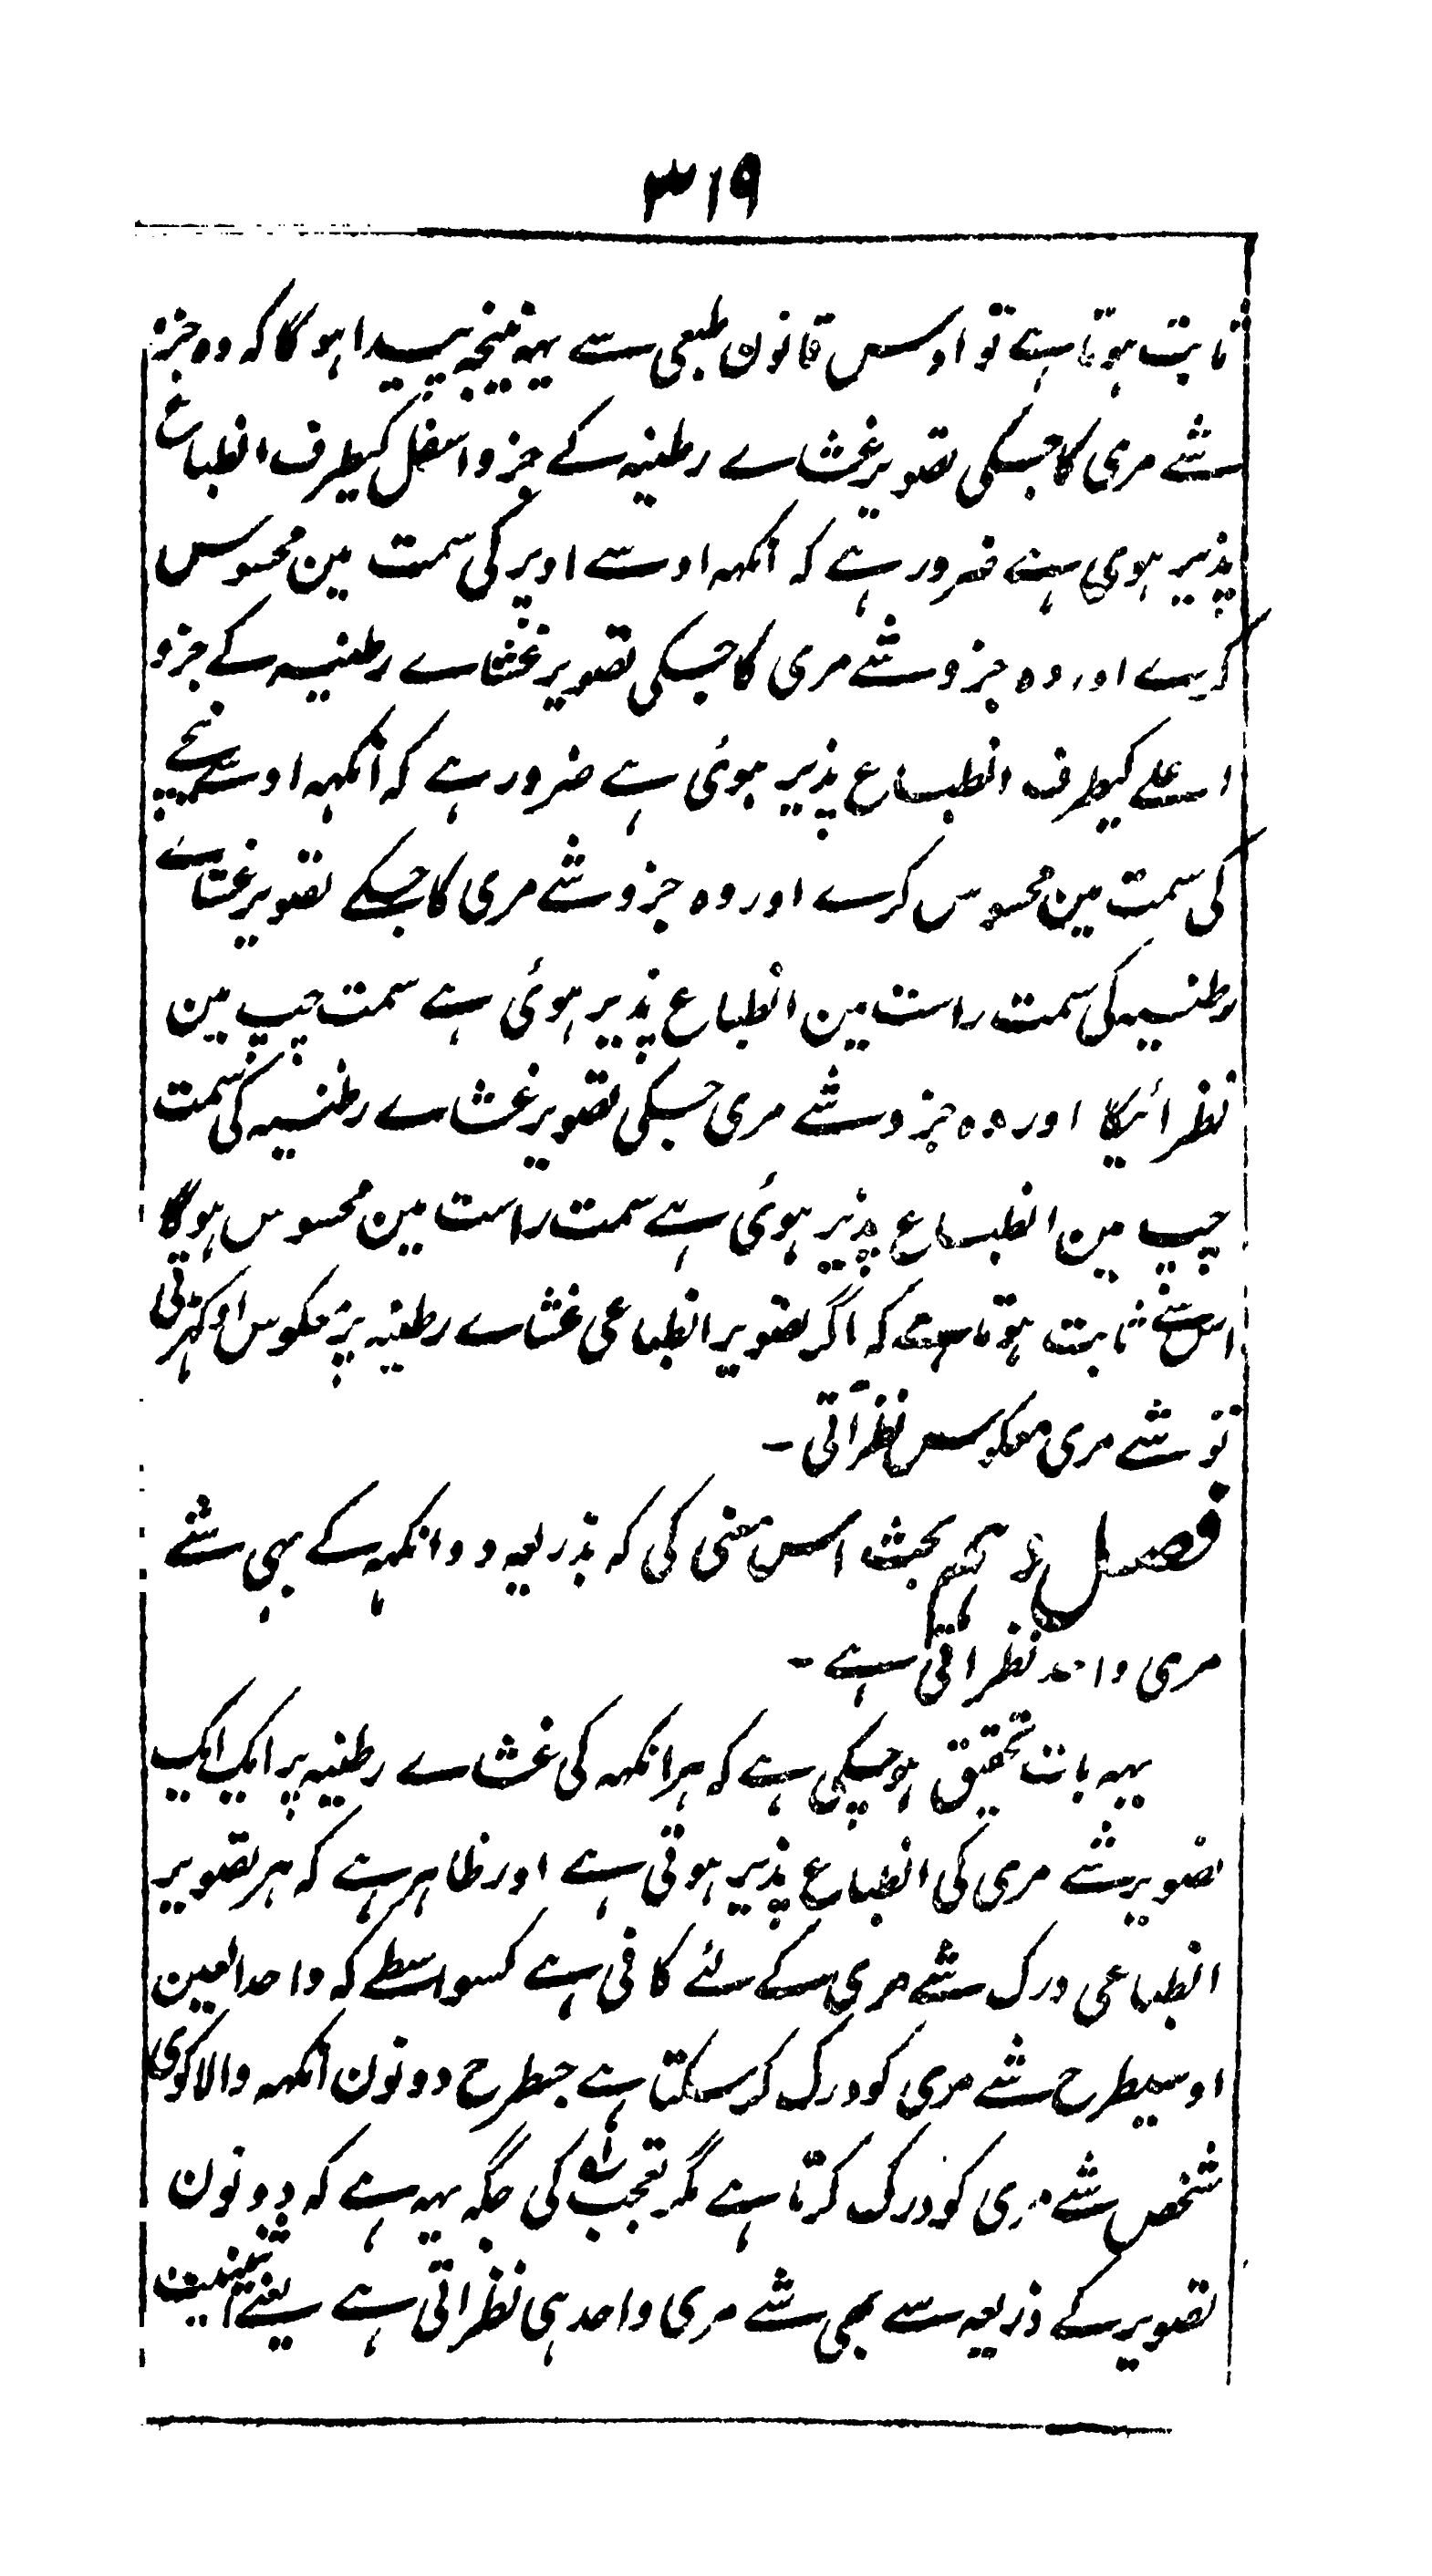 ۳۱۹
ثابت ہوتا ہے تو اوس قانون طبعی سے یہہ نتیجہ پیدا ہو گا کہ وہ جزو
شے مری کا جسکی تصویر غشاے رطنیہ کے جزو اسفل کیطرف انطباع
پذیر ہوی ہے ضرور ہے کہ آنکہہ اوسے اوپر کی سمت مین محسوس
کرے اور وہ جزو شے مری کا جسکی تصویر غشاے رطنیہ کے جزو
اعلے کیطرف انطباع پذیر ہوئی ہے ضرور ہے کہ آنکہہ اوسے نیچے
کی سمت مین محسوس کرے اور وہ جزو شے مری کا جسکے تصویر غشاے
رطنیہ کی سمت راست مین انطباع پذیر ہوئی ہے سمت چپ مین
نظر ائیگا اور وہ جزو شے مری جسکی تصویر غشاے رطنیہ کی سمت
چپ مین انطباع پذیر ہوئی ہے سمت راست مین محسوس ہوگا
اس سے ثابت ہوتا ہے کہ اگر تصویر انطباعی غشاے رطنیہ پر معکوس اوکہڑتی
تو شے مری معکوس نظر آتی ۔
فصل بحث اس معنی کی کہ بذریعہ دو انکہہ کے بہی شے
مری واحد نظر اتی ہے ۔
یہہ بات تحقیق ہو چکی ہے کہ ہر انکہہ کی غشاے رطنیہ پر ایک ایک
تصویر شے مری کی انطباع پذیر ہوتی ہے اور ظاہر ہے کہ ہر تصویر
انطباعی درک شے مری کے لئے کافی ہے کسواسطے کہ واحد العین
اوسیطرح شے مری کو درک کر سکتا ہے جسطرح دونون آنکہہ والا کوئی
شخص شے مری کو درک کرتا ہے مگر تعجب کی جگہ یہہ ہے کہ دونون
تصویر کے ذریعہ سے بھی شے مری واحد ہی نظر اتی ہے یعنے اثنینیت